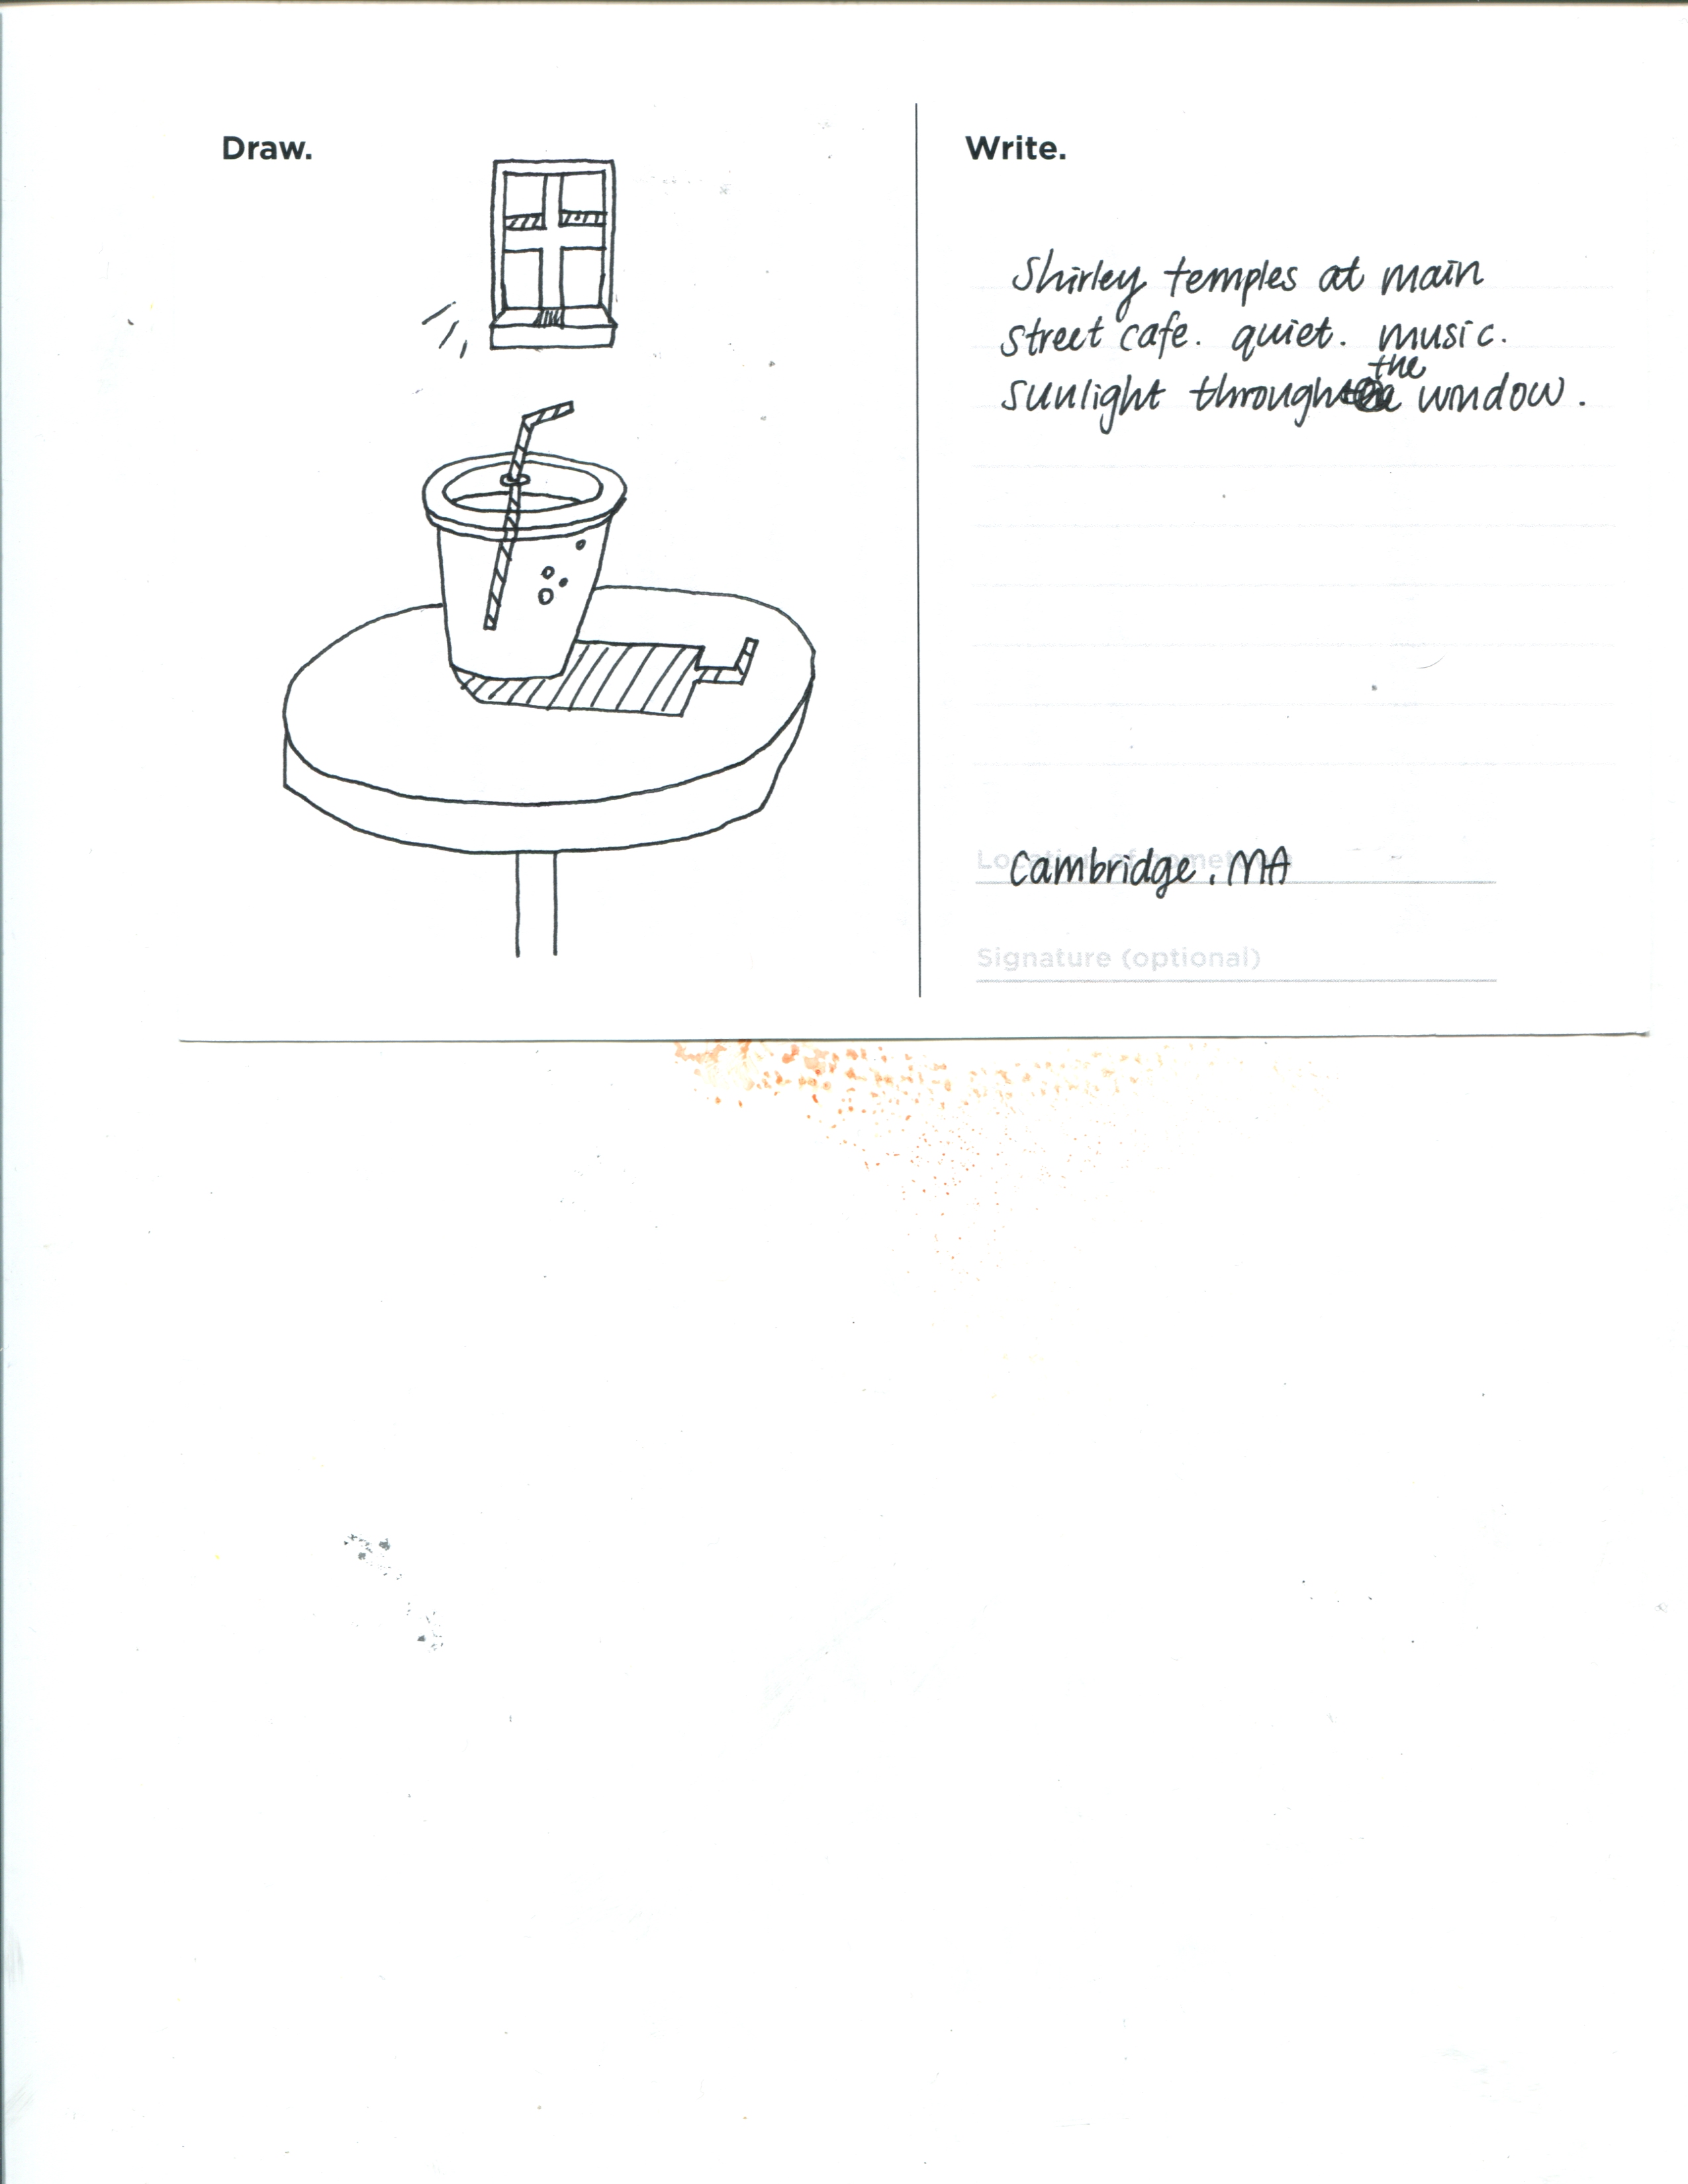 Draw.
Write.
Shirley temples at main
street cafe. quiet. music.
sunlight through the window.
Location of hometown
Cambridge, MA
Signature (optional)